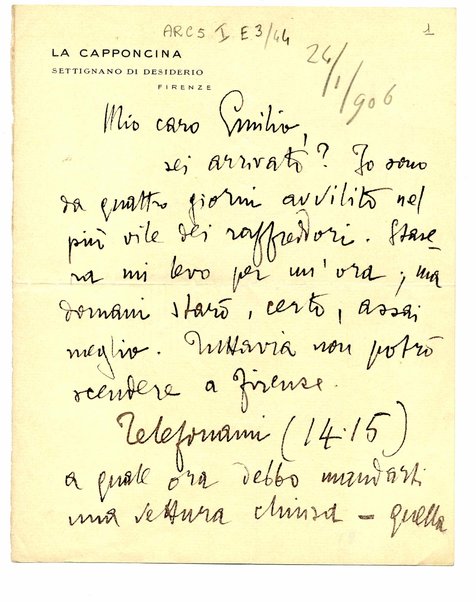 ARC5 I E3/44
1
LA CAPPONCINA
SETTIGNANO DI DESIDERIO
FIRENZE
24/1/906
Mio caro Emilio,
sei arrivato? Io sono
da quattro giorni avvilito nel
più vile dei raffreddori. Stase-
ra mi levo per un'ora; ma
domani starò, certo, assai
meglio. Tuttavia non potrò
scendere a Firenze.
Telefonami (14.15)
a quale ora debbo mandarti
una vettura chiusa – quella